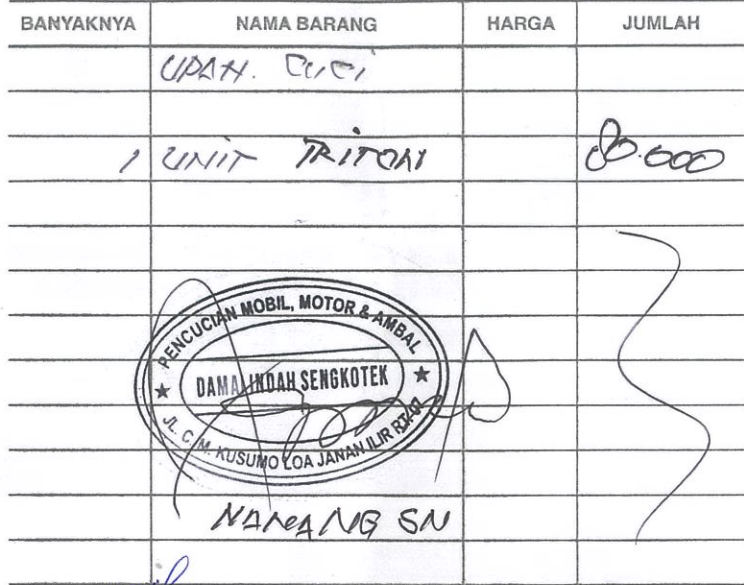 BANYAKNYA NAMA BARANG HARGA JUMLAH
UPAH. CUCI
1 UNIT TRITON 80.000
PENCUCIAN MOBIL, MOTOR & AMBAL
DAMAI INDAH SENGKOTEK
JL. C. M. KUSUMO LOA JANAN ILIR RT.07
NANANG SN